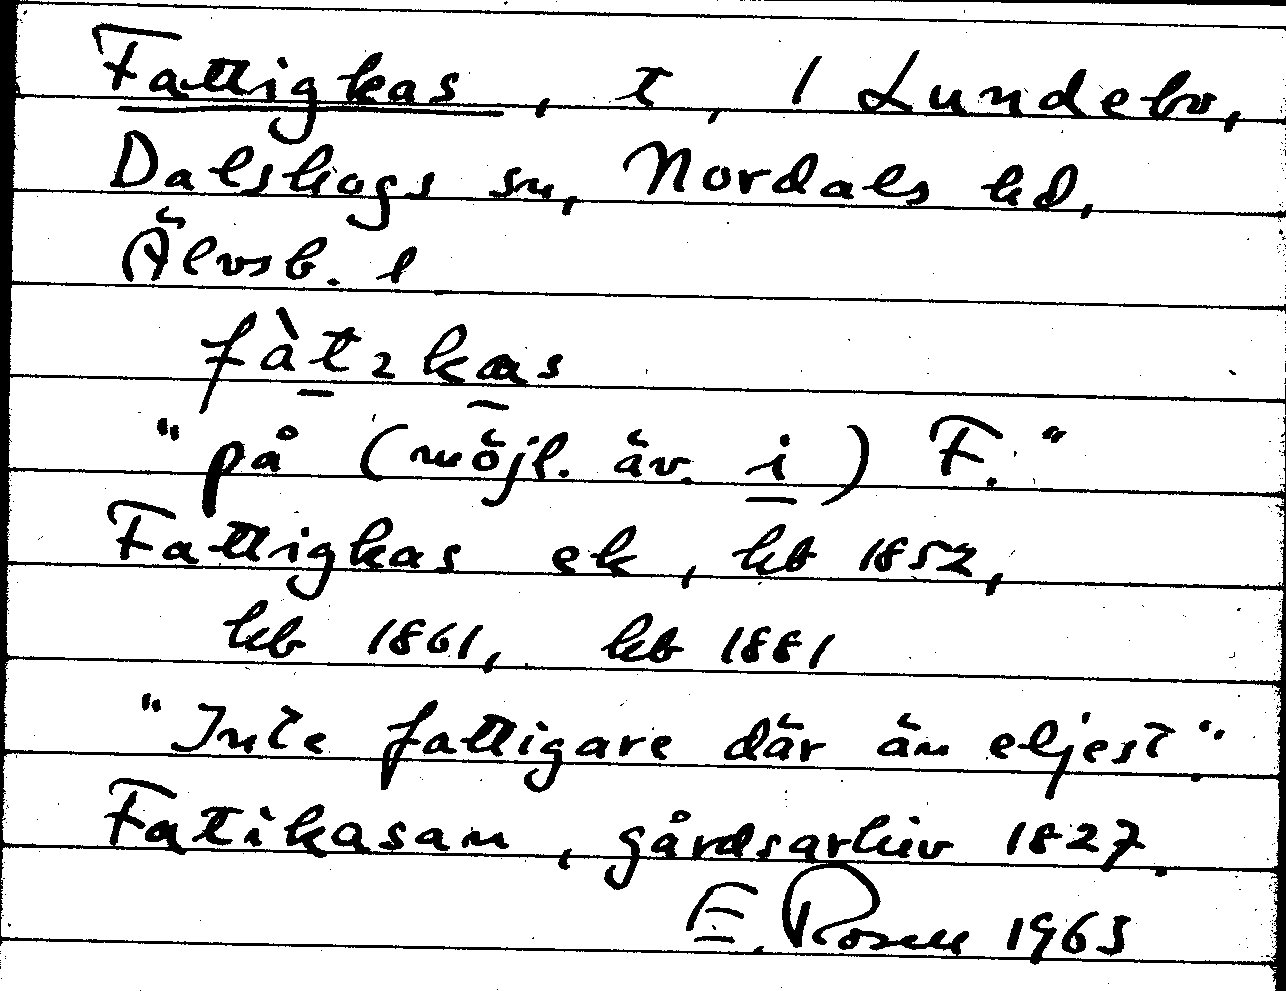 Fattigkas, t, 1 Lundebo,
Dalskogs sn, Nordals hd,
Älvsb. l
fàt2kas
"på (möjl. äv. i) F."
Fattigkas ek, kb 1852,
kb 1861, kb 1881
"Inte fattigare där än eljest".
Fatikasan, gårdsarkiv 1827.
E. Rosell 1963